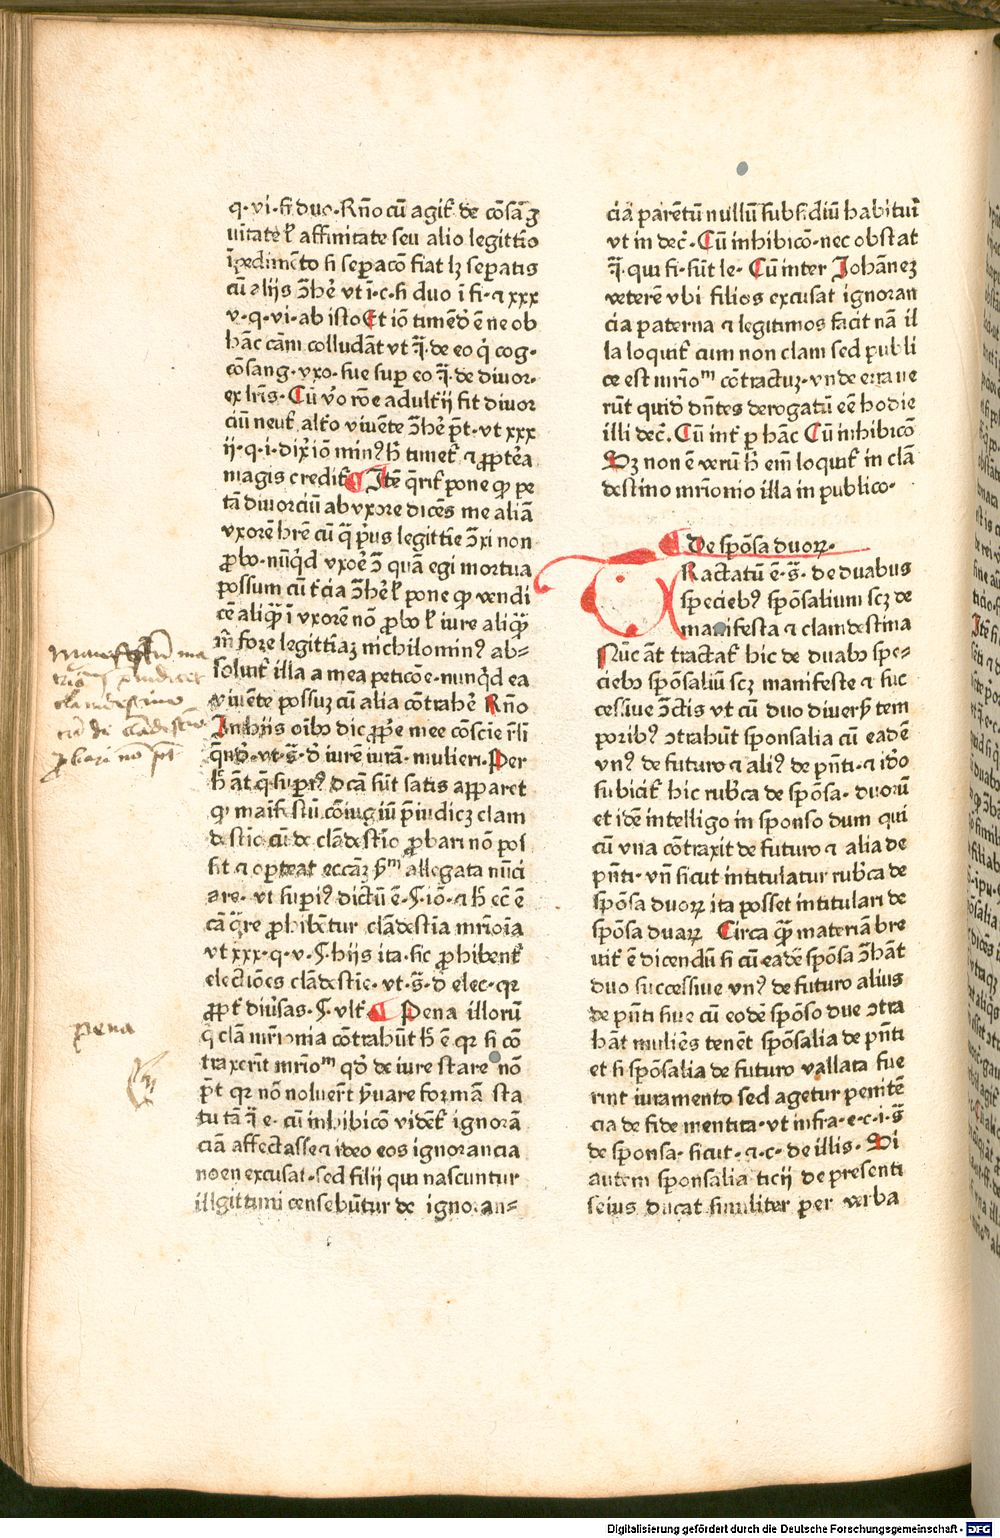 q·vi·si duo·Rn̄o cū agit᷑ de cōsāg
uītate ł affinitate seu alio legitt̄io
īpedimēto si sepacō fiat lꝫ sepatis
cū alijs ↄ̄hē vt ī·c·si duo ī fi·⁊ xxx
v·q·vi·ab isto Et iō timēd̄ ē ne ob
hāc cām colludāt vt q̄·de eo q̄ cog-
cōsang·vxo·sue sup eo q̄·de diuor·
ex lr̄is·Cū v̄o rōe adult̄ij fit diuor
ciū neut᷑ alt̄o viuēte ↄ̄hē p̄t·vt xxx
ij·q·i·dix̄ iō minꝰ h̄ timet᷑ ⁊ ꝓpt̄ea
magis credit᷑ Itē q̄rit᷑ pone ꝙ pe
tā diuorciū ab vxore dicēs me aliā
vxorē hr̄e cū q̄ p̄us legittīe ↄ̄xi non
ꝓbo·nūq̄d vxoē ↄ̄ quā egi mortua
possum cū t̄cia ↄ̄hē ł pone ꝙ vendi
cē aliq̄ ī vxorē nō ꝓbo ł iure aliq̄
m̄ fore legittīaꝫ nichilominꝰ ab-
soluit᷑ illa a mea peticōe·nunq̄d ea
viuēte possuꝫ cū alia cōtrahē Rn̄o
In hijs oībo dic ꝓpe mee cōscie r̄li
q̄nd̄·vt·s̄·d̄ iurē iurā·mulieri·Per
h̄ āt q̄ supiꝰ dcā sūt satis apparet
ꝙ maīfestū cōiugiū p̄iudicꝫ clam
destīo cū de clādestīo ꝓbari nō pos
sit ⁊ opteat eccāꝫ sᵐ allegata nūci
are·vt supiꝰ dictū ē·§·iō·⁊ h̄ ec̄ ē
cā q̄re ꝓhibētur clādestīa mrīoīa
vt xxx·q·v·§·hijs ita·sic ꝓhibent᷑
electiōes clādestīe·vt·s̄·d̄ elec·qꝛ
ꝓpt᷑ diūsas·§·vlt᷑ Pena illorū
q̄ clā mrīonia cōtrahūt h̄ ē qꝛ si cō
traxerīt mrīoᵐ qd̄ de iure stare nō
p̄t qꝛ nō noluer̄t s̄uare formā sta
tutā q̄ e·cū inhibicō vident᷑ ignorā
ciā affectasse ⁊ ideo eos ignorancia
noen excusat·sed filij qui nascuntur
illgittimi censebūtur de ignoran=
Manifestū ma
clandestino
ꝓbari nō pt
pena
ciā parētū nullū subsidiū habituri
vt in dec̄·Cū inhibicō·nec obstat
q̄·qui fi·sūt le·Cū inter Johānez
veterē vbi filios excusat ignoran
cia paterna ⁊ legitimos facit nā il
la loquit᷑ cum non clam sed publi
ce est mrīoᵐ cōtractuꝫ·vnde erraue
rūt quid̄ dn̄tes derogatū eē hodie
illi dec̄·Cū int̄ p hāc Cū inhibicō
Sꝫ non ē verū h̄ em̄ loquit᷑ in clā
destino mrīonio illa in publico·
De spōsa duoꝝ·
TRactatū ē·s̄·de duabus
speciebꝰ spōsalium scꝫ de
manifesta ⁊ clamdestina
Nūc āt tractat᷑ hic de duabo spe-
ciebo spōsaliū scꝫ manifeste ⁊ suc
cessiue ↄ̄ctis vt cū duo diuers̄ tem
poribꝰ ↄtrahūt sponsalia cū eadē
vnꝰ de futuro ⁊ aliꝰ de p̄nti·⁊ id̄o
subicit᷑ hic rub̄ca de spōsa·duorū
et idē intelligo in sponso dum qui
cū vna cōtraxit de futuro ⁊ alia de
p̄nti·vn̄ sicut intitulatur rub̄ca de
spōsa duoꝝ ita posset intitulari de
spōsa duaꝝ Circa q̄ materiā bre
uit᷑ ē dicendū si cū eadē spōsa ↄ̄hāt
duo successiue vnꝰ de futuro alius
de p̄nti siue cū eodē spōso due ↄtra
hāt muliēs tenēt spōsalia de p̄nti
et si spōsalia de futuro vallata fue
rint iuramento sed agetur penitē
cia de fide mentita·vt infra·e·c·i·s̄
de sponsa·sicut·⁊·c·de illis·Si
autem sponsalia ticij de presenti
seius ducat similiter per verba
Digitalisierung gefördert durch die Deutsche Forschungsgemeinschaft - DFG